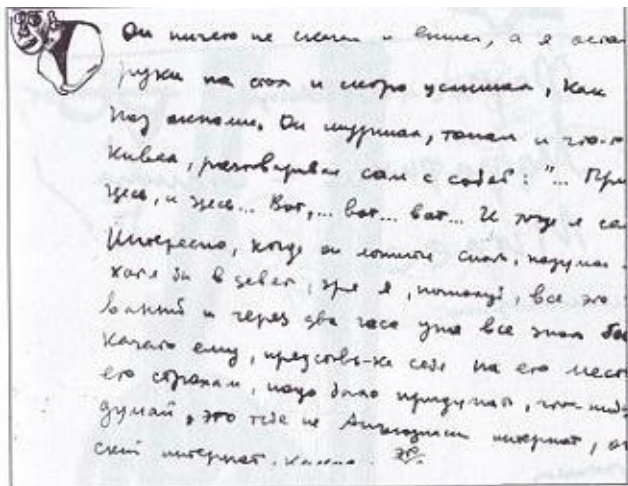 Он ничего не сказал и вышел, а я
руки на стол и скоро услышал, как
под окнами. Он шуршал, топал и что-
разговаривая сам с собой: "... При
здесь, и здесь... Вот,... вот... вот... И тогда я
Интересно, когда он ложится спать, подумал
хотя бы в девять, зря я, пожалуй, все это
и через два часа уже все знал
ему, представь-ка себя на его мест
его страхам, надо было придумать, что-нибу
думай, это тебе не интернат,
ский интернат.